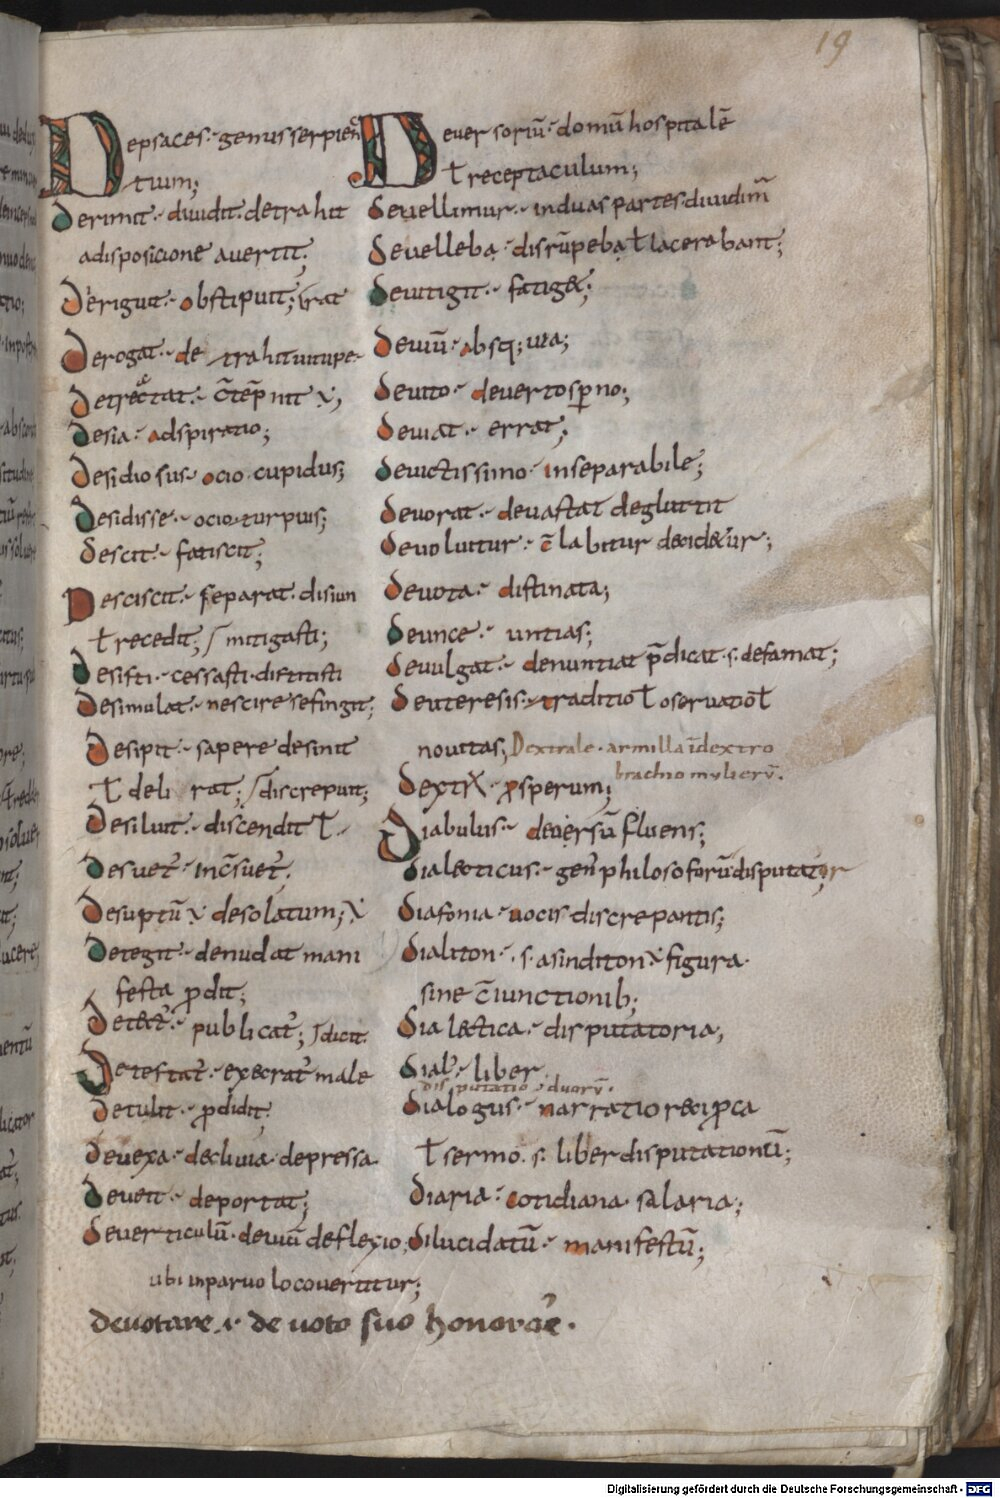 19
Depsaces · genus serpien
tium;
derimit · diuidit · detrahit
adisposicione auertit;
derigut · obstiputt; srat
derogat · de trahituitupe
detrectat · c̄tēpnit ỿ;
desia · adspiratio;
desidiosus · ocio · cupidus;
desidisse · ocio · turpius;
descit · fatiscit;
Desciscit · separat · disiun
ł recedit; / mitigasti;
desisti · cessasti · distitisti
desimulat · nescire se fingit;
desipit · sapere desinit
ł deli rat; / discreputt;
desiluit · discendit ł
desuet᷒ · inc̄suet᷒;
desuptū ỿ desolatum; ỿ
detegit · denudat mani
festa p̄dit;
publicat᷒; / dicit
detestat᷒ · execrat᷒ male
detulit · p̄didit;
deuexa · decliuia · depressa
deueit · deportat;
deuerticulū · deuiū deflexio,
ubi inparuo locouertitur;
deuotare · i · de uoto suo honorare ·
Deuersoriū · domū hospitalē
ł receptaculum;
deuellimur · induas partes · diuidim̄
deuelleba · disrūpeba ł lacerabant;
deuitigit · fatiget;
deuiū · absq; uia;
deuito · deuerto sp̄no;
deuiat · errat;
deuictissimo · inseparabile;
deuorat · deuastat degluttit
deuoluitur · c̄labitur decidetur;
deuota · distinata;
deunce · untias;
deuulgat · denuntiat p̄dicat · s · defamat;
deuteresis · traditio ł oseruatio ł
nouitas; Dextrale · armilla ī dextro
brachio mylierū ·
prosperum;
Diabulus · deorsū fluens;
dialecticus · gen᷒ philosoforū disputator
diafonia · uocis discrepantis;
dialiton · s · asinditon ỿ figura ·
sine c̄iunctionib;
dialectica · disputatoria;
dial᷒ · liber
disputatio · duorū ·
dialogus · narratio recip̄ca
ł sermo · s · liber disputationū;
diaria · cotidiana · salaria;
dilucidatū · manifestū;
Digitalisierung gefördert durch die Deutsche Forschungsgemeinschaft - DFG